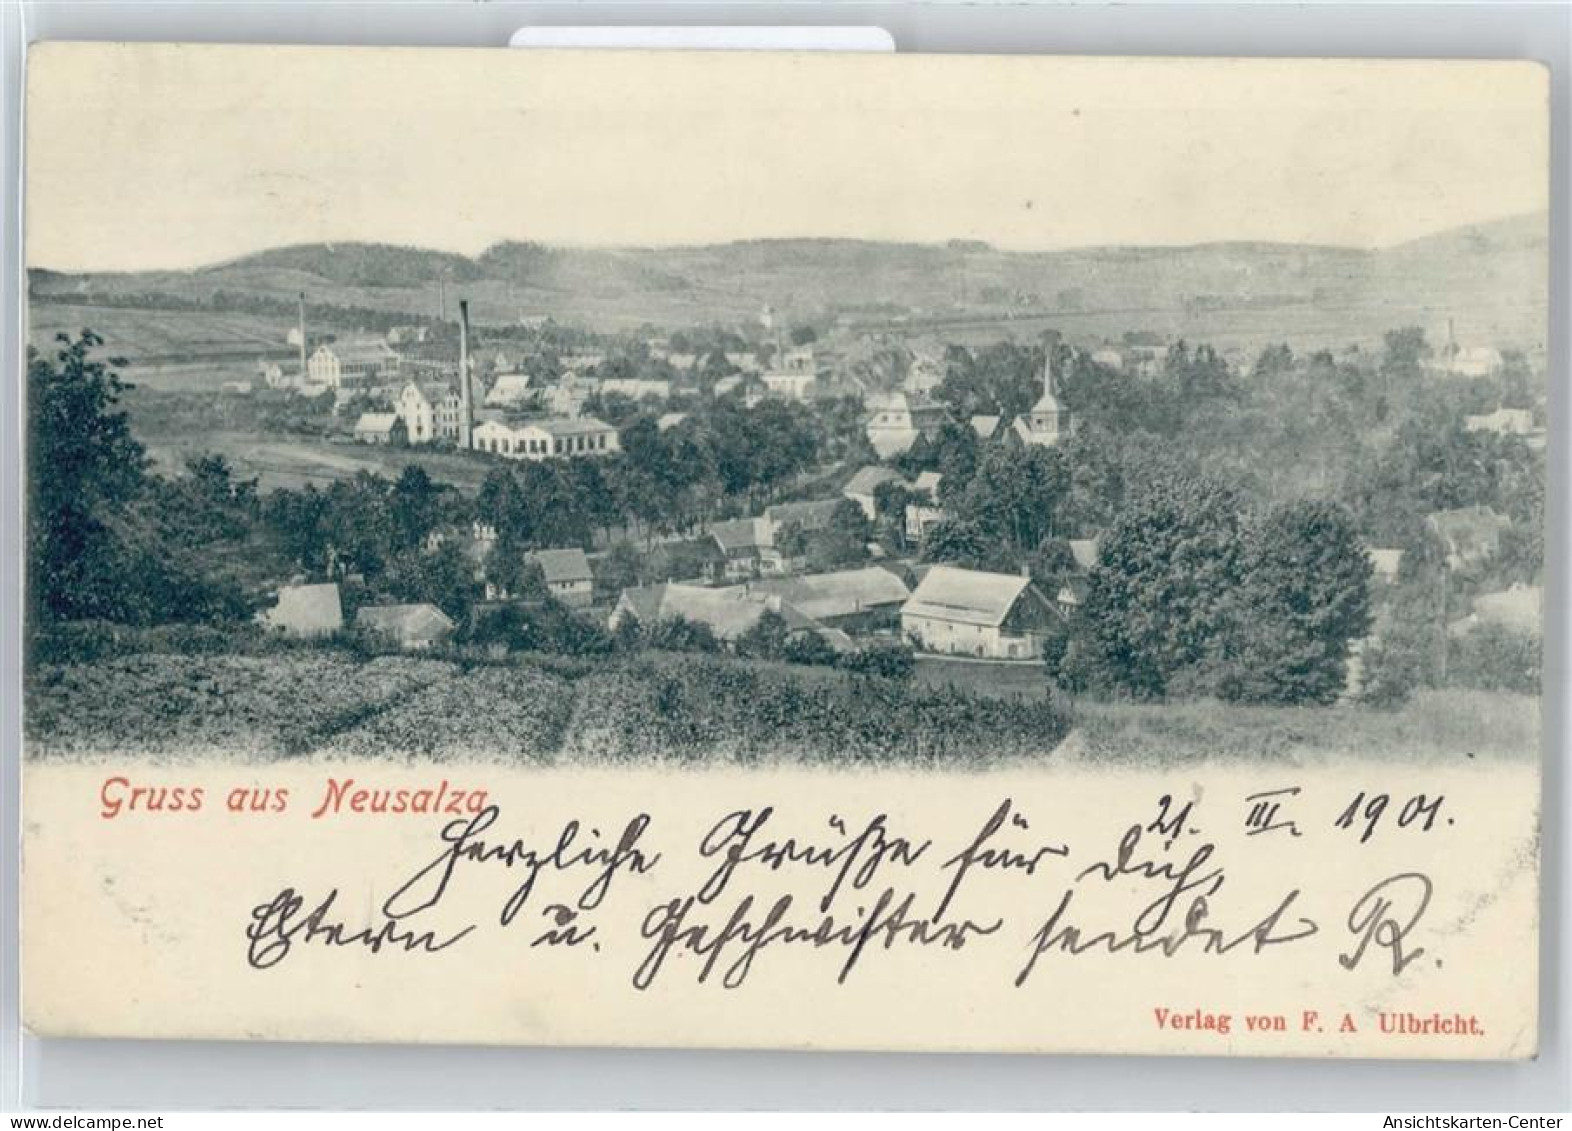 Gruss aus Neusalza
21. III. 1901.
Herzliche Grüße für Dich,
Eltern u. Geschwister sendet R.
Verlag von F. A Ulbricht.
oldthing.de
Ansichtskarten-Center